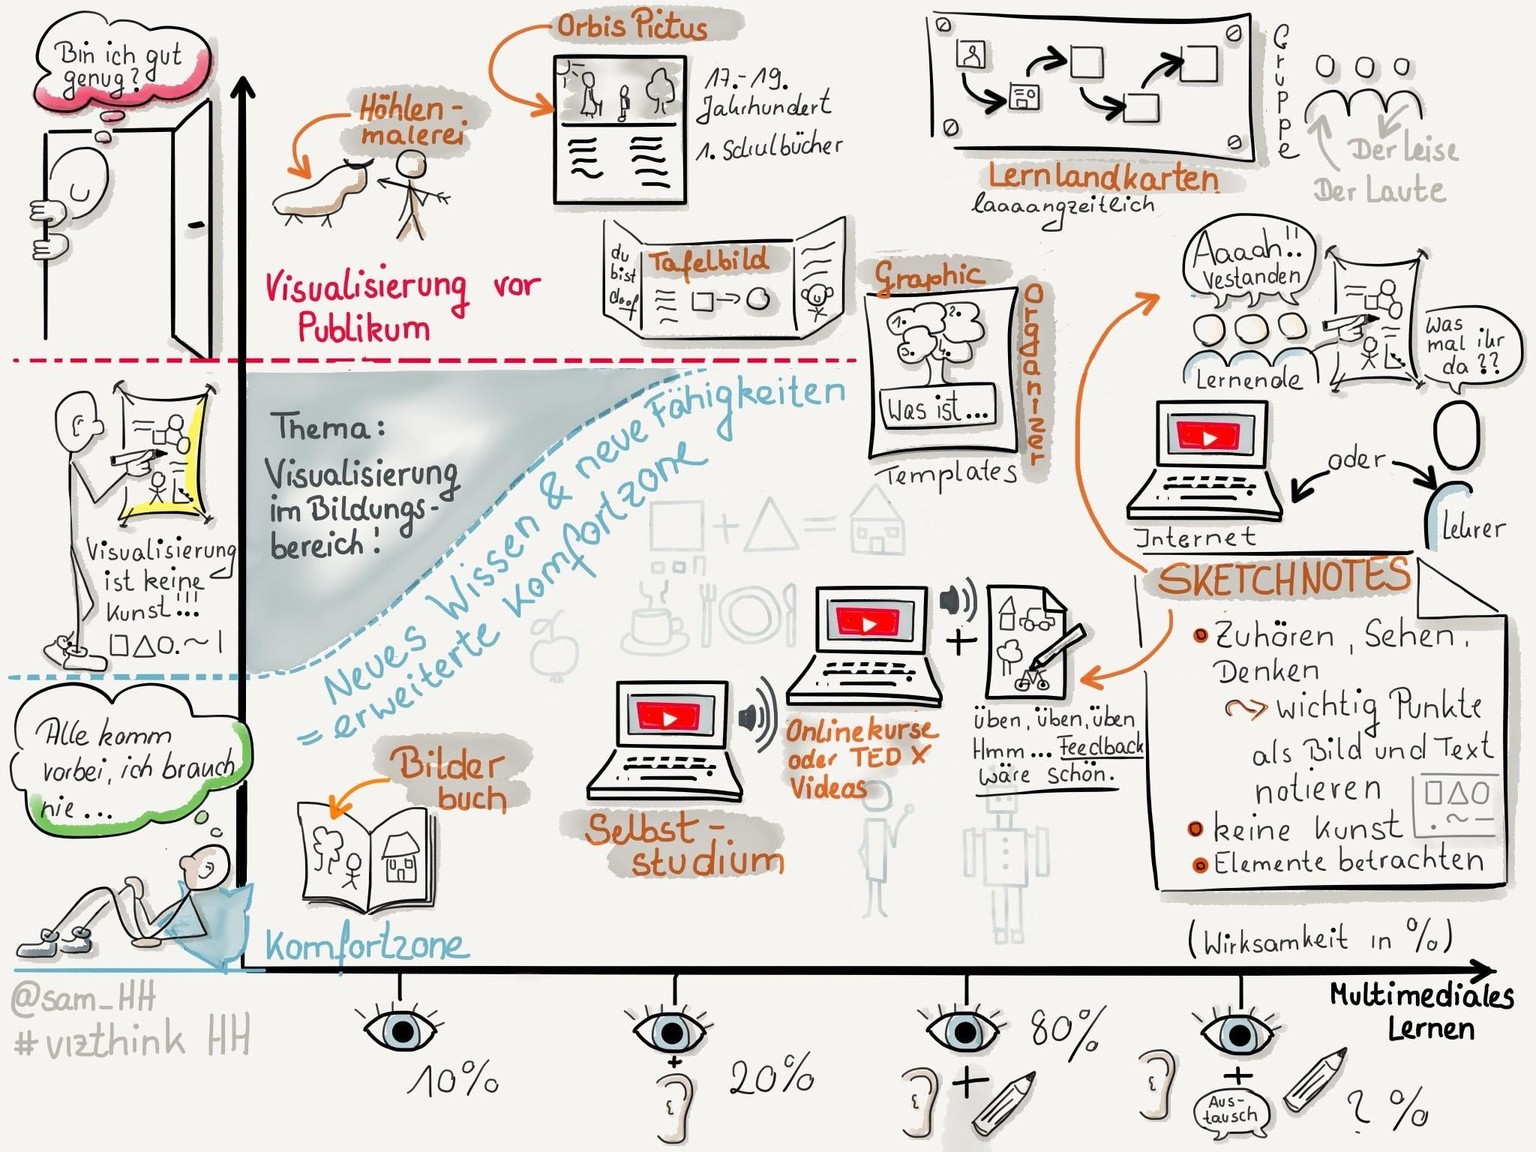 Bin ich gut
genug?
Höhlen-
malerei
Orbis Pictus
17.-19.
Jahrhundert
1. Schulbücher
Lernlandkarten
laaaangzeitlich
Gruppe
Der leise
Der Laute
Visualisierung vor
Publikum
du
bist
doof
Tafelbild
Graphic
Organizer
1.
2.
3.
4.
Was ist...
Templates
Aaaah!!
Vestanden
Lernende
Was
mal ihr
da??
Internet
oder
Lehrer
Thema:
Visualisierung
im Bildungs-
bereich!
Neues Wissen & neue Fähigkeiten
= erweiterte Komfortzone
Visualisierung
ist keine
Kunst!!!
Alle komm
vorbei, ich brauch
nie...
Komfortzone
Bilder
buch
Selbst-
studium
Onlinekurse
oder TED X
Videos
+
üben, üben, üben
Hmm... Feedback
wäre schön.
SKETCHNOTES
Zuhören, Sehen,
Denken
wichtig Punkte
als Bild und Text
notieren
keine Kunst
Elemente betrachten
(Wirksamkeit in %)
Multimediales
Lernen
@sam_HH
#vizthink HH
10%
+
20%
+
80%
+
Aus-
tausch
? %